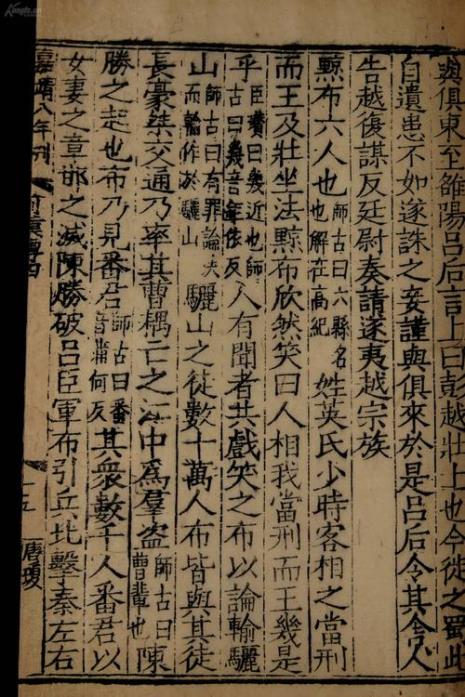 與俱東至雒陽呂后言上曰彭越壯士也今徙之蜀此
自遺患不如遂誅之妾謹與俱來於是呂后令其舍人
告越復謀反廷尉奏請遂夷越宗族
黥布六人也師古曰六縣名也解在高紀姓英氏少時客相之當刑
而王及壯坐法黥布欣然笑曰人相我當刑而王幾是
乎臣瓚曰幾近也師古曰幾音鉅依反人有聞者共戲笑之布以論輸驪
山師古曰有罪論決而輸作於驪山驪山之徒數十萬人布皆與其徒
長豪桀交通乃率其曹耦亡之江中爲羣盜師古曰曹輩也陳
勝之起也布乃見番君師古曰番音蒲何反其衆數千人番君以
女妻之章邯之滅陳勝破呂臣軍布引兵北擊秦左右
嘉靖八年刊 前漢傳四 十五